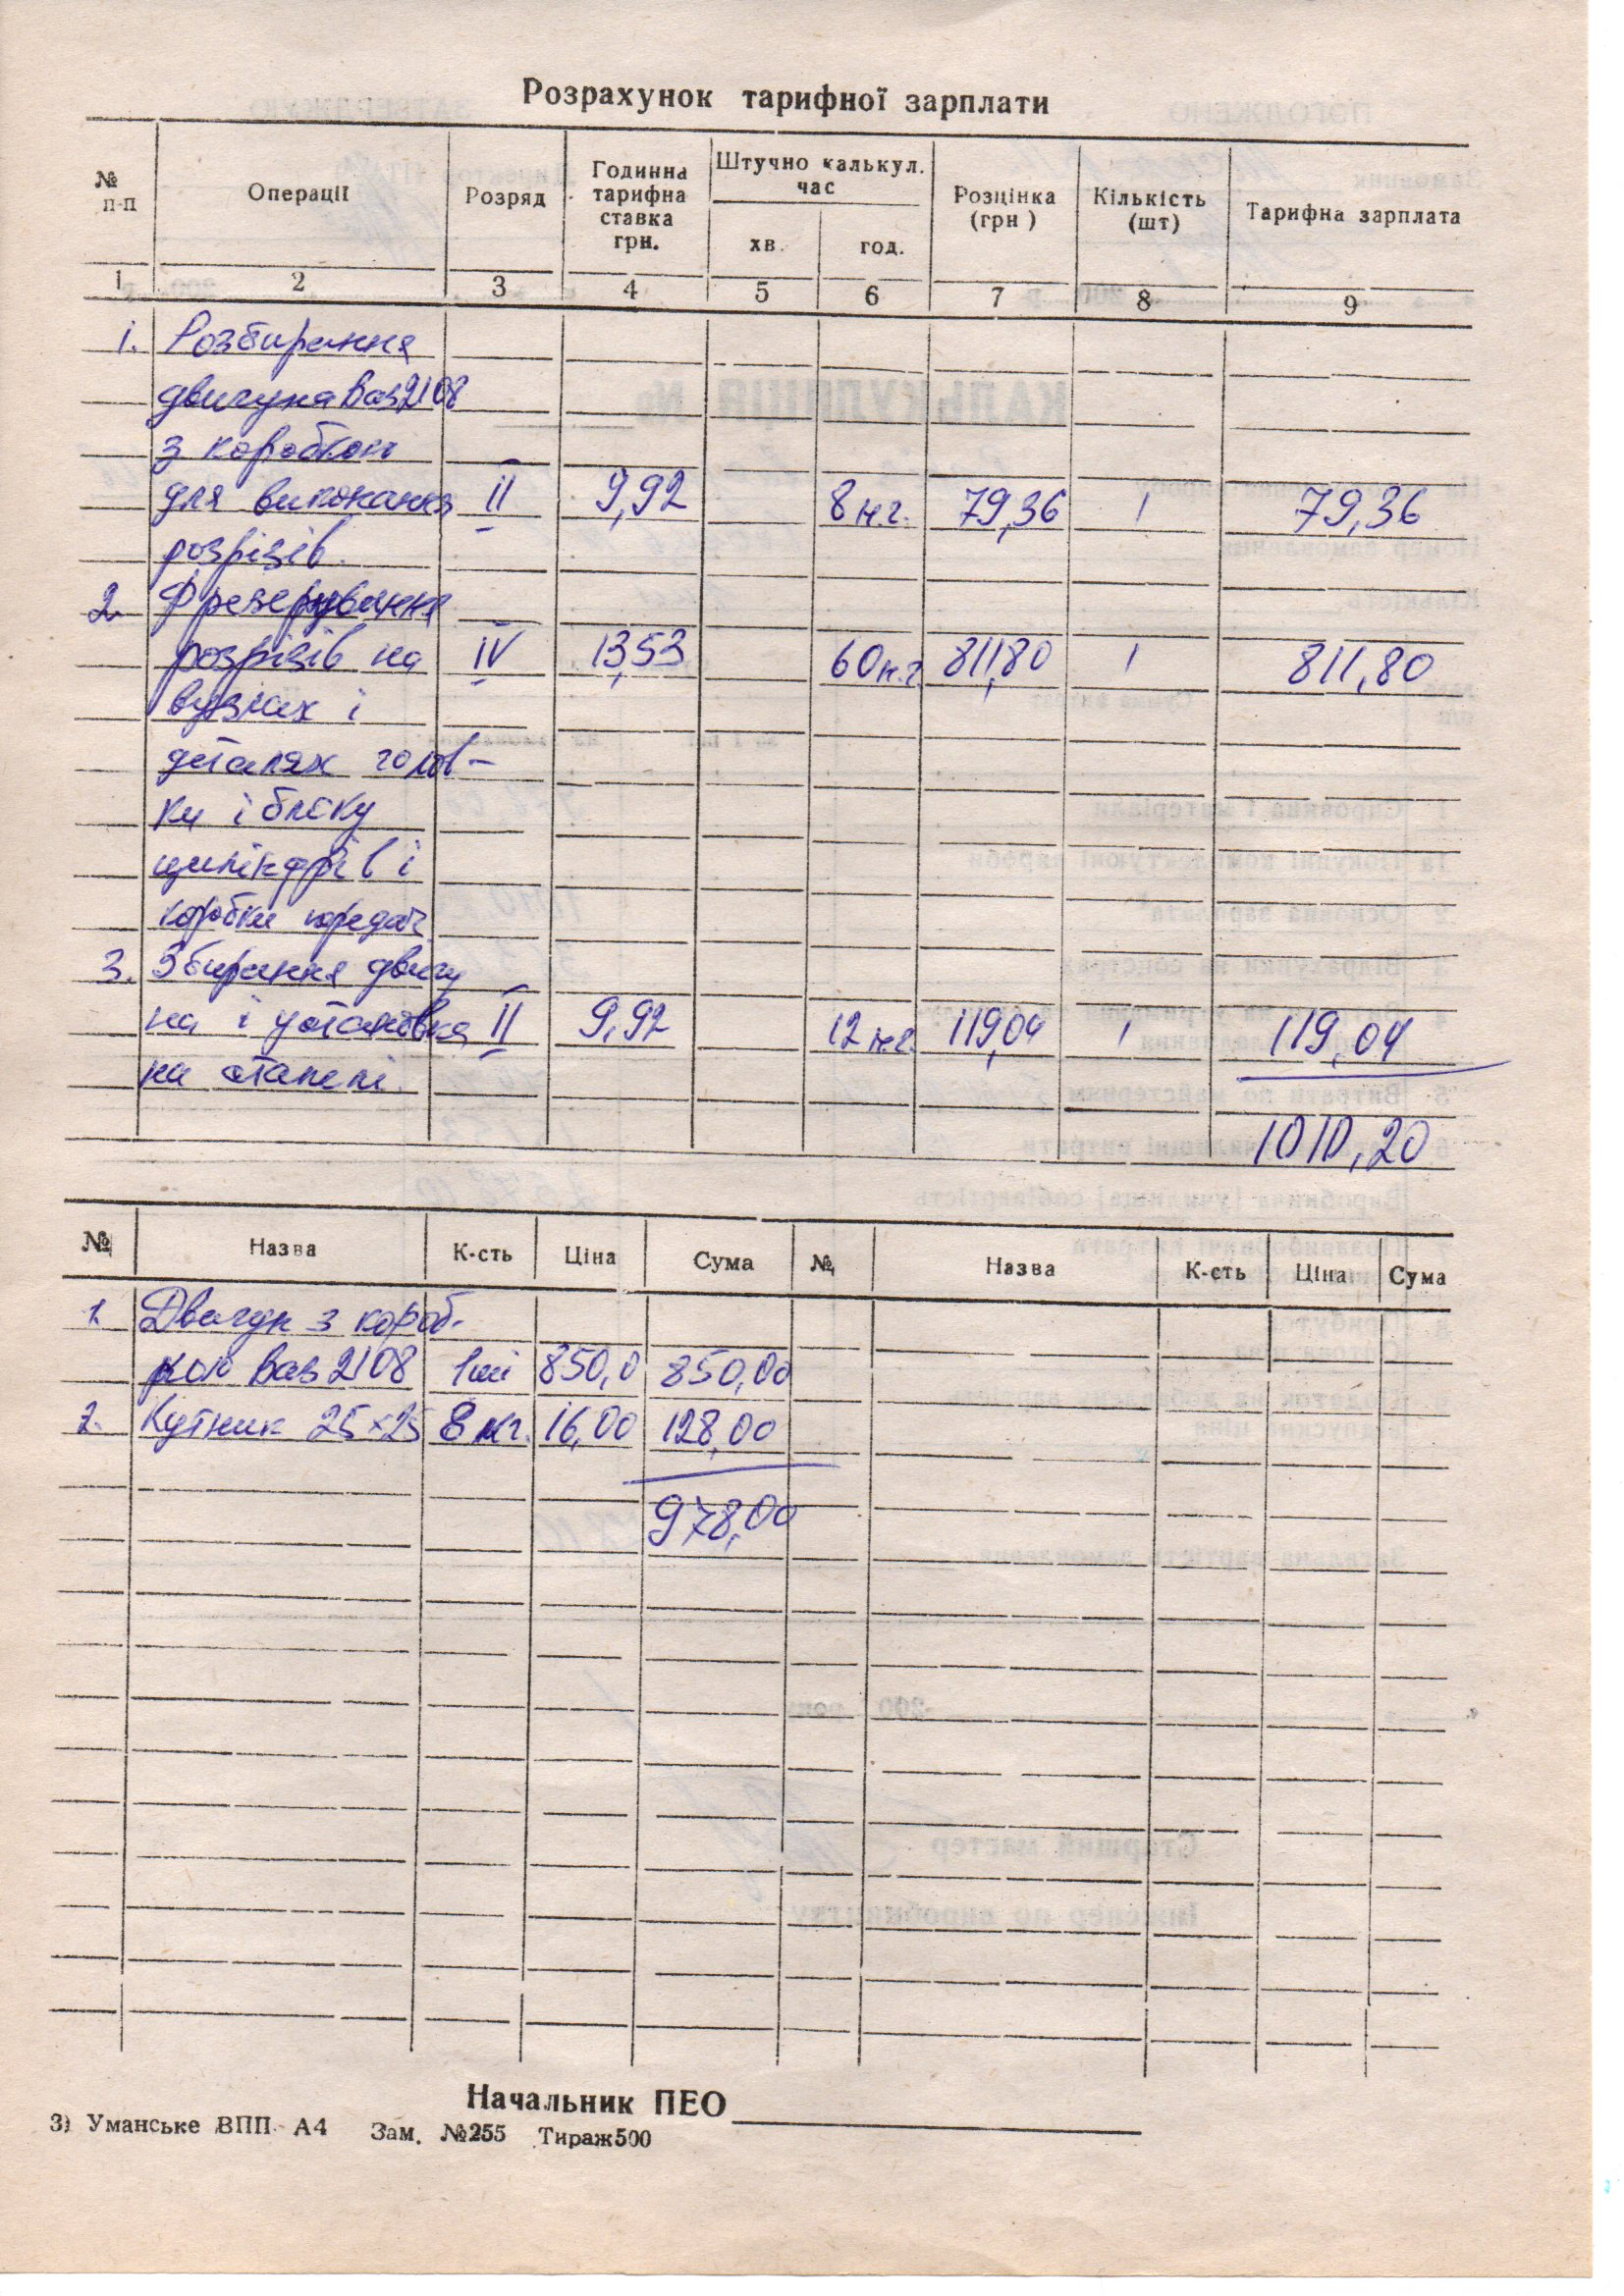 Розрахунок тарифної зарплати
№ п-п Операції Розряд Годинна тарифна ставка грн. Штучно калькул. час хв. год. Розцінка (грн) Кількість (шт) Тарифна зарплата
1 2 3 4 5 6 7 8 9
1. Розбирання
двигуна Ваз 2108
з коробкою
для виконання II 9,92 8 н.г. 79,36 1 79,36
розрізів.
2. Фрезерування
розрізів на IV 13,53 60 н.г. 811,80 1 811,80
вузлах і
деталях голов-
ки і блоку
циліндрів і
коробки передач
3. Збирання двигу
на і установка II 9,92 12 н.г. 119,04 1 119,04
на стапелі.
1010,20
№ Назва К-сть Ціна Сума № Назва К-сть Ціна Сума
1. Двигун з короб-
кою Ваз 2108 1шт 850,0 850,00
2. Кутник 25×25 8 кг. 16,00 128,00
978,00
Начальник ПЕО
3) Уманське ВПП А4 Зам. №255 Тираж 500